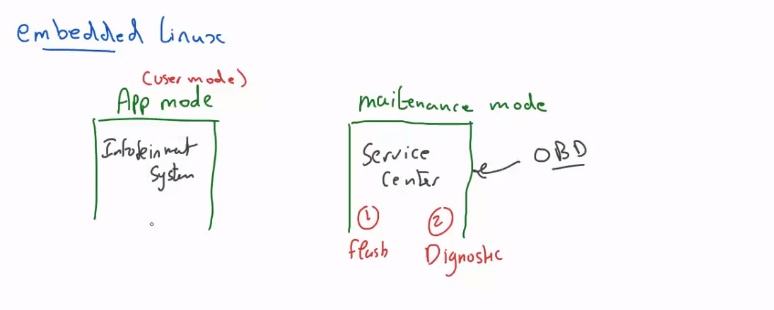 embedded Linux
(user mode)
App mode
Infoteinment
System
maitenance mode
Service
Center
OBD
① ②
flush Dignostic